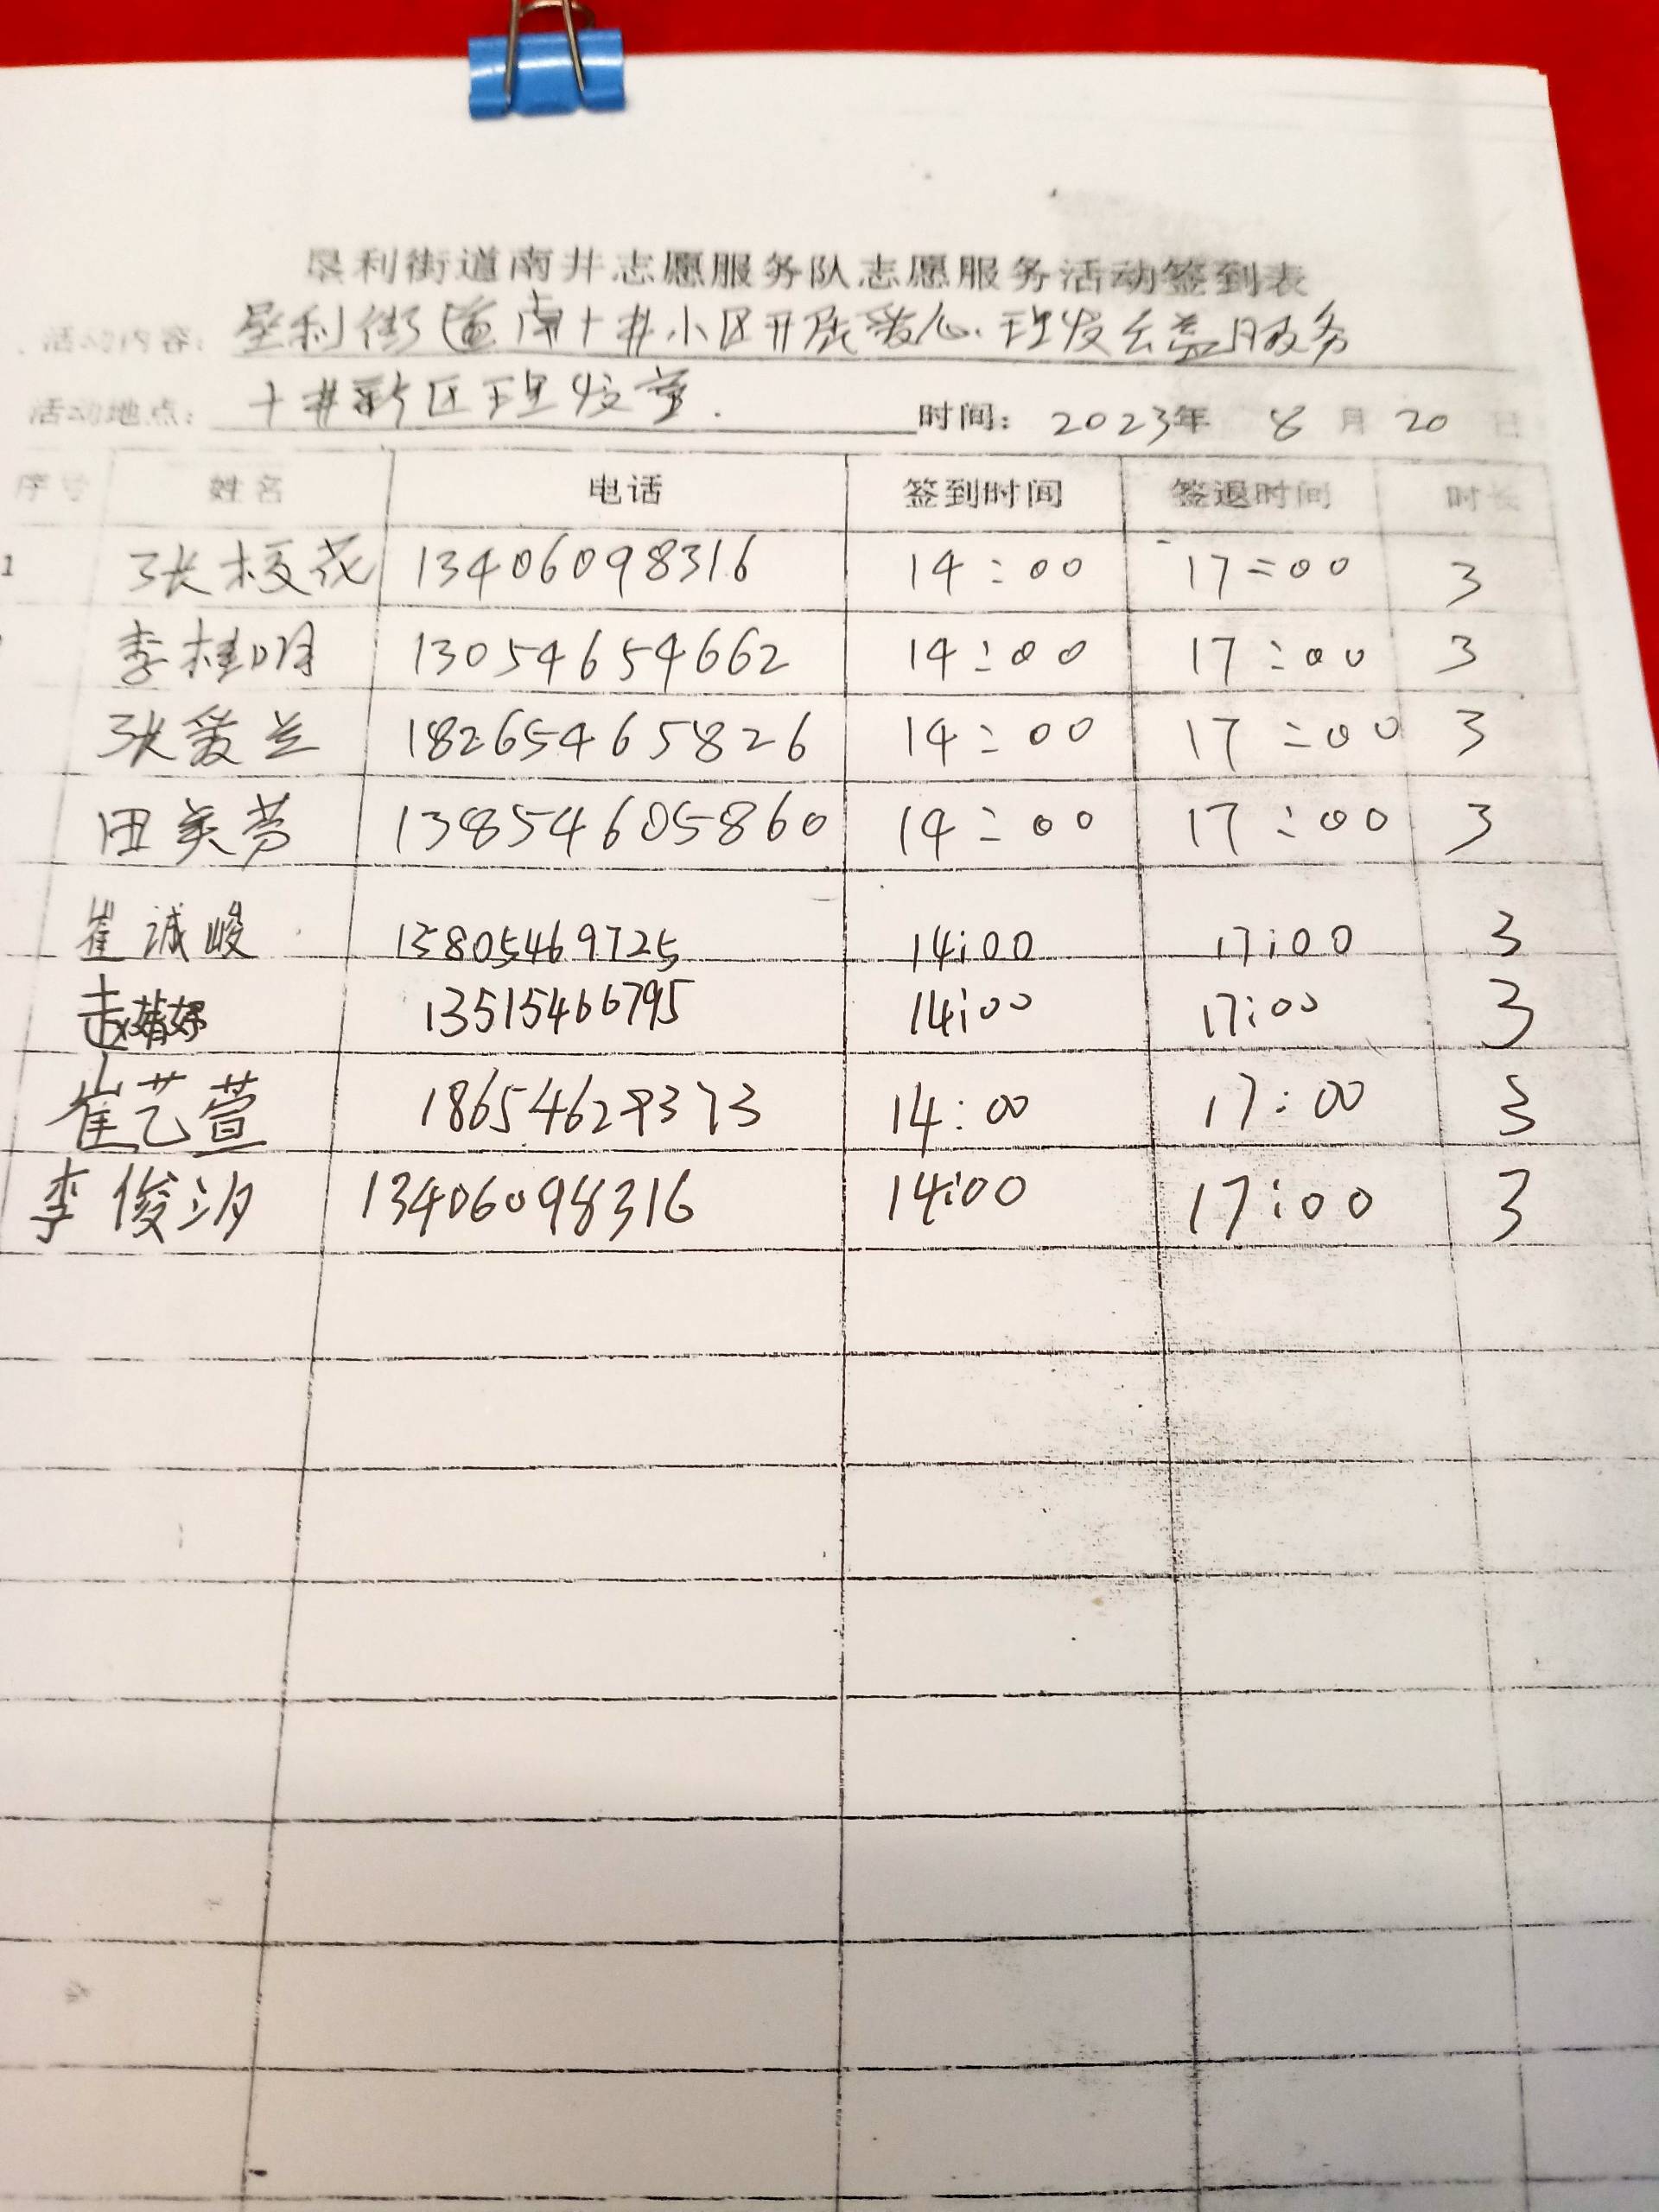 垦利街道南井志愿服务队志愿服务活动签到表
活动内容：垦利街道南十井小区开展爱心理发公益服务
活动地点：十井新区理发室. 时间：2023年 8 月 20 日
序号 姓名 电话 签到时间 签退时间 时长
1 张校花 13406098316 14:00 17:00 3
李桂明 13054654662 14:00 17:00 3
张爱兰 18265465826 14:00 17:00 3
田美芳 13854605860 14:00 17:00 3
崔诚峻 13805469725 14:00 17:00 3
赵婧妤 13515466795 14:00 17:00 3
崔艺萱 18654629373 14:00 17:00 3
李俊汐 13406098316 14:00 17:00 3